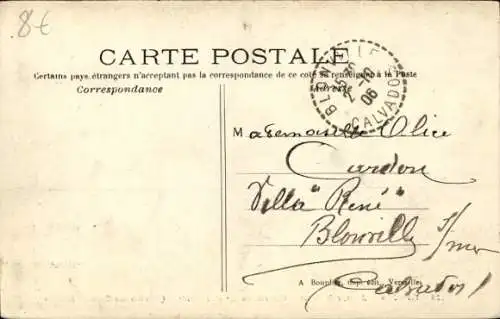 8€
CARTE POSTALE
Certains pays étrangers n'acceptant pas la correspondance de ce côté se renseigner à la Poste
Correspondance
Adresse
BLONVILLE
2 -10
06
CALVADOS
Mademoiselle Alice
Cardon
Villa "René"
Blonville s/mer
Calvados
A Bourdier, imp. édit., Versailles